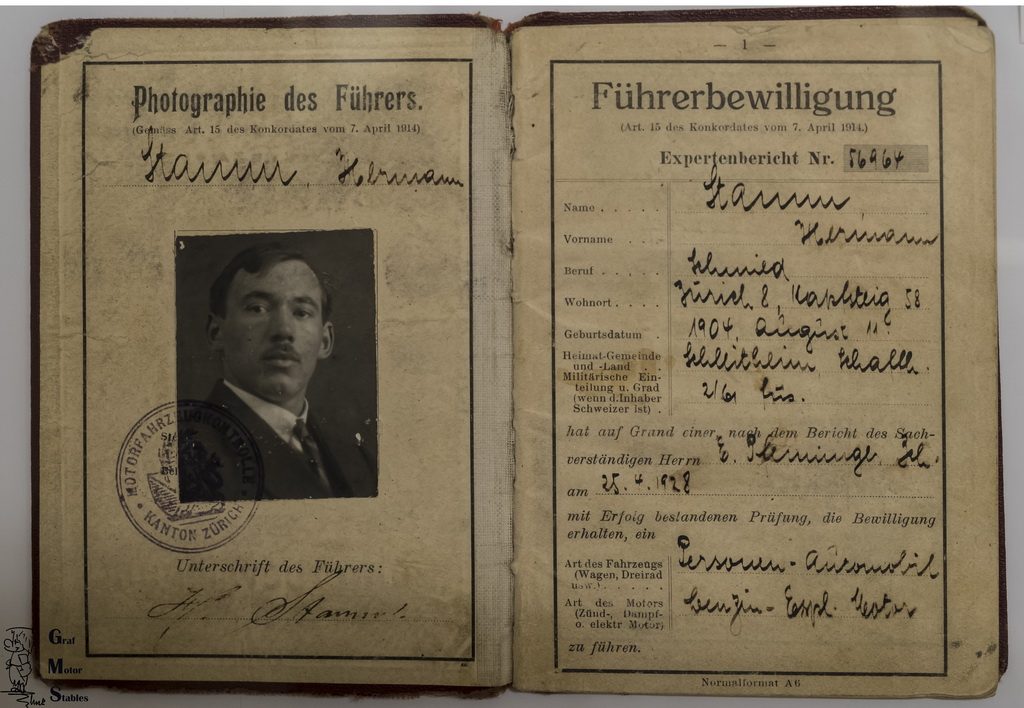 Photographie des Führers.
(Gemäss Art. 15 des Konkordates vom 7. April 1914)
Stamm, Hermann
MOTORFAHRZEUGKONTROLLE
KANTON ZÜRICH
Unterschrift des Führers:
Stamm
— 1 —
Führerbewilligung
(Art. 15 des Konkordates vom 7. April 1914.)
Expertenbericht Nr. 56964
Name . . . . . Stamm
Vorname . . . . . Hermann
Beruf . . . . . Schmied
Wohnort . . . . Zürich 8, 58
Geburtsdatum . 1904, August 11.
Heimat-Gemeinde
und -Land . . Schleitheim, Schaffh.
Militärische Ein-
teilung u. Grad
(wenn d. Inhaber
Schweizer ist) .
hat auf Grund einer, nach dem Bericht des Sach-
verständigen Herrn E.
am 25. 4. 1928
mit Erfolg bestandenen Prüfung, die Bewilligung
erhalten, ein
Art des Fahrzeugs
(Wagen, Dreirad
usw.) Personen-Automobil
Art des Motors
(Zünd-, Dampf-
o. elektr Motor) Benzin-Expl. Motor
zu führen.
Normalformat A6
Graf
Motor
Stables